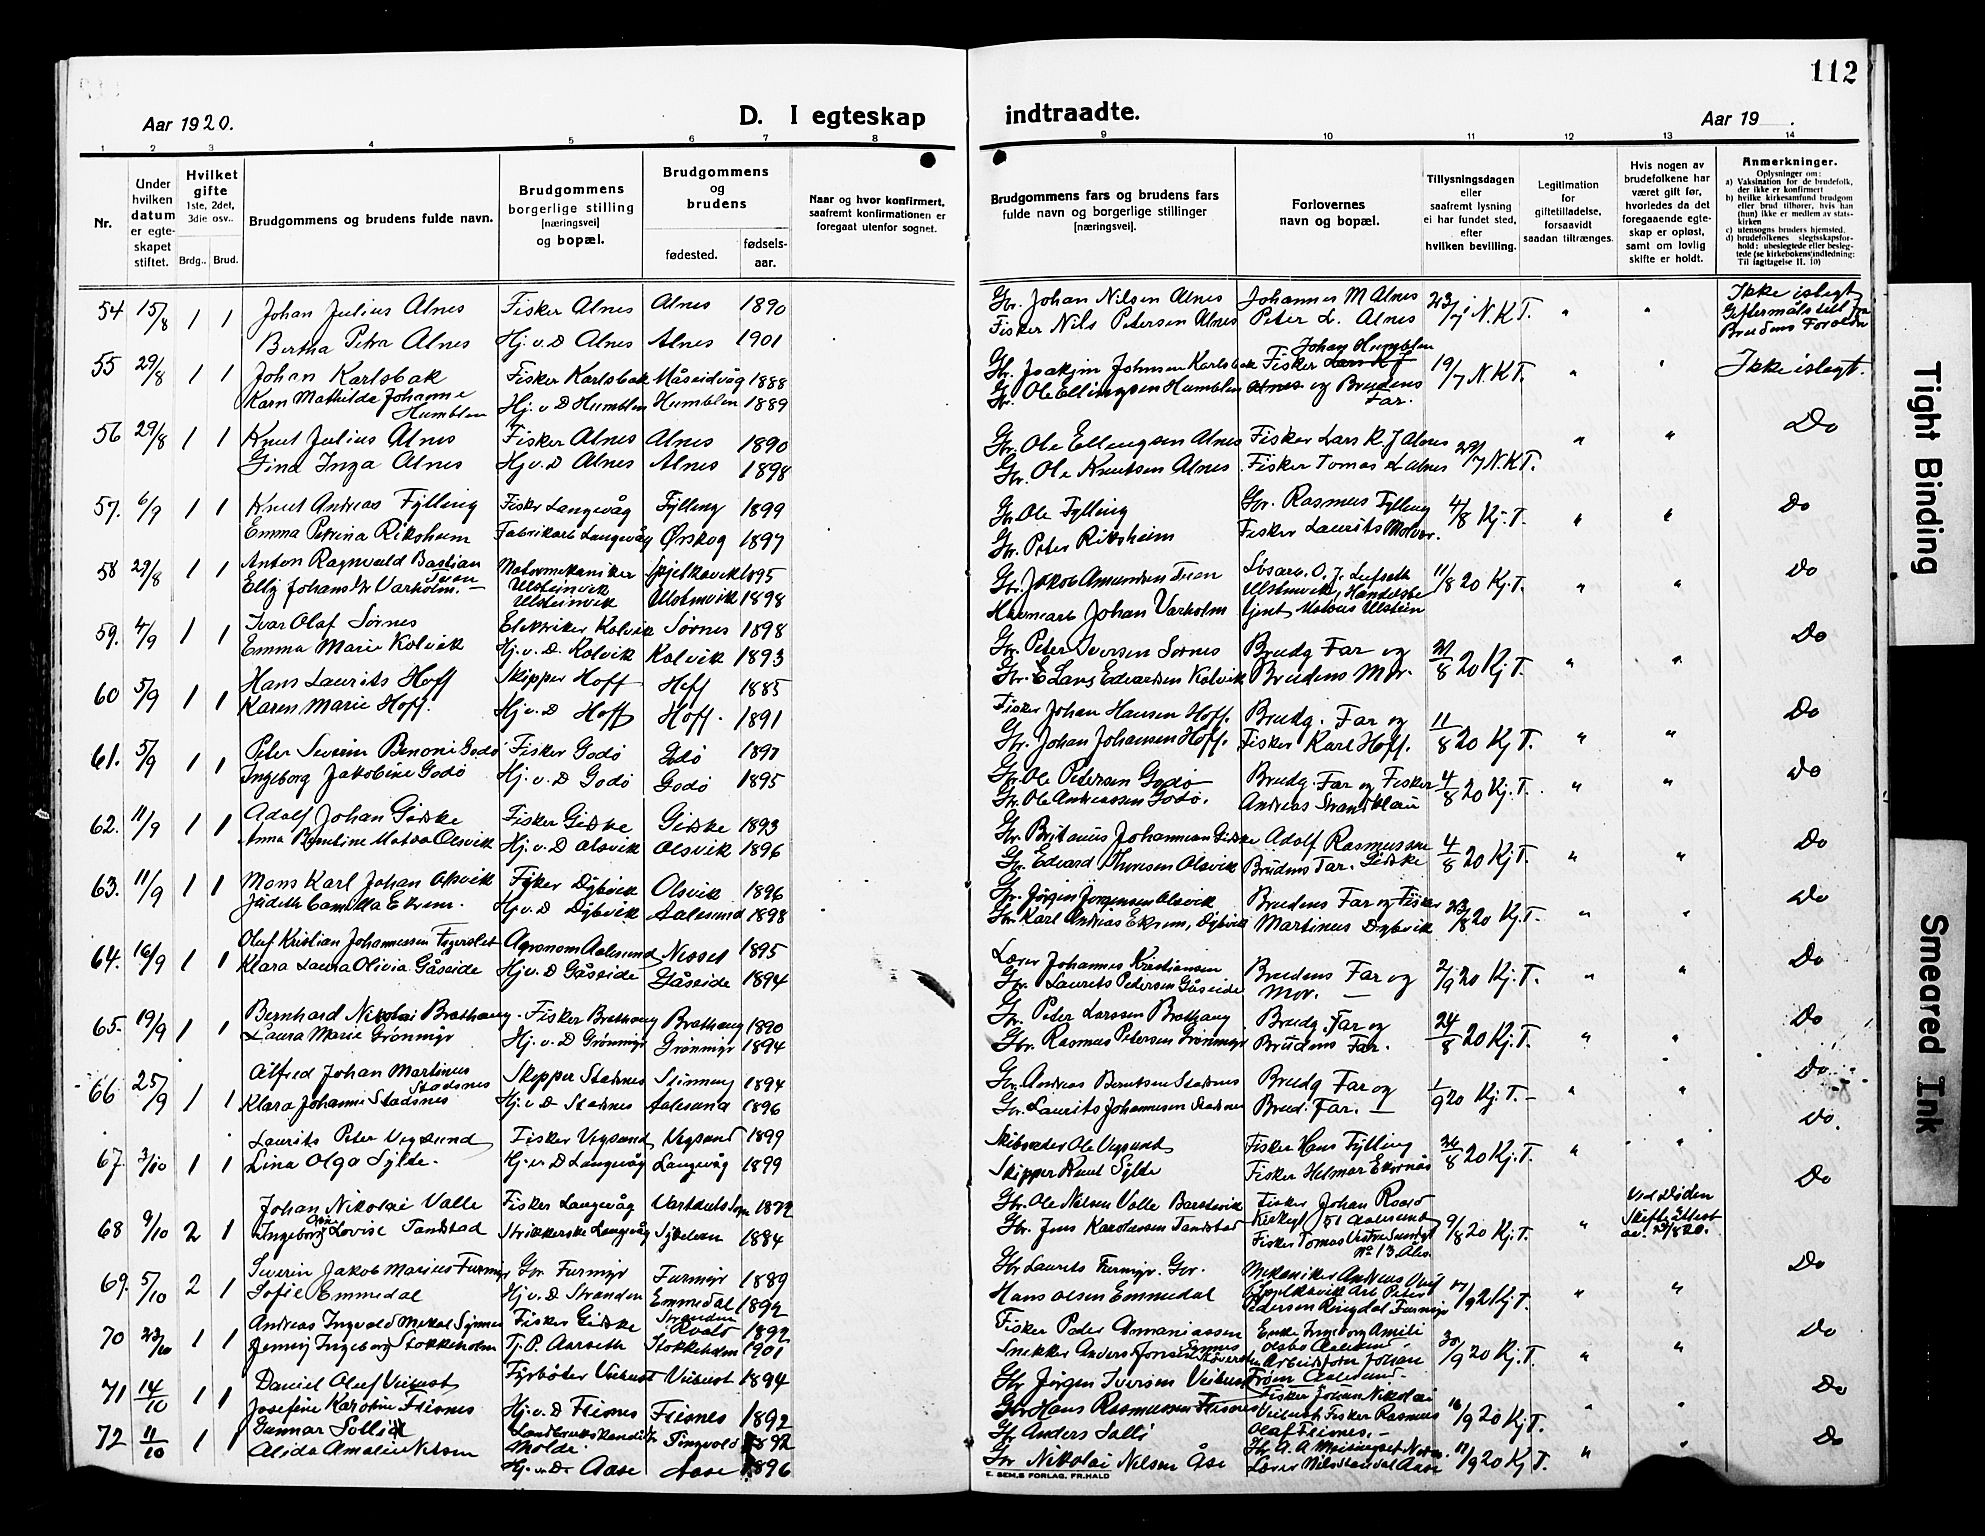 112
Aar 1920.
D. I egteskap indtraadte.
Aar 19 .
1 2 3 4 5 6 7 8 9 10 11 12 13 14
Nr.
Under hvilken datum er egteskapet stiftet.
Hvilket gifte 1ste, 2det, 3die osv..
Brdg.. Brud.
Brudgommens og brudens fulde navn.
Brudgommens borgerlige stilling [næringsvei] og bopæl.
Brudgommens og brudens
fødested.
fødselsaar.
Naar og hvor konfirmert, saafremt konfirmationen er foregaat utenfor sognet.
Brudgommens fars og brudens fars fulde navn og borgerlige stillinger [næringsvei].
Forlovernes navn og bopæl.
Tillysningsdagen eller saafremt lysning ei har fundet sted, efter hvilken bevilling.
Legitimation for giftetilladelse, forsaavidt saadan tiltrænges.
Hvis nogen av brudefolkene har været gift før, hvorledes da det foregaaende egteskap er opløst, samt om lovlig skifte er holdt.
Anmerkninger.
Oplysninger om:
a) Vaksination for de brudefolk, der ikke er konfirmert
b) hvilke kirkesamfund brudgom eller brud tilhører, hvis han (hun) ikke er medlem av statskirken
c) utensogns bruders hjemsted.
d) brudefolkenes slegtsskapsforhold: ubeslegtede eller beslegtede (se kirkebokens indledning: Til iagttagelse II. 10)
54 15/8 1 1 Johan Julius Alnes Fisker Alnes Alnes 1890 Gbr. Johan Nilsen Alnes Johannes M Alnes 23/7 N.K.T. " " Ikke i slegt
Bertha Petra Alnes Hj.v.D Alnes Alnes 1901 Fisker Nils Petersen Alnes Peter L. Alnes Giftermålstill. fra Brudens Foreldre
55 29/8 1 1 Johan Karlsbak Fisker Karlsbak Måseidvåg 1888 Gbr. Joakim Johnsen Karlsbak Fisker Johan Humblen 19/7 N.K.T. " " Ikke i slegt.
Karn Mathilde Johanne Humblen Hj.v.D Humblen Humblen 1889 Gbr. Ole Ellingsen Humblen og Brudens Far.
56 29/8 1 1 Knut Julius Alnes Fisker Alnes Alnes 1890 Gbr. Ole Ellingsen Alnes Fisker Lars K. J Alnes 29/7 N.K.T. " " Do
Gina Inga Alnes Hj.v.D Alnes Alnes 1898 Gbr. Ole Knutsen Alnes Fisker Tomas L Alnes
57. 6/9 1 1 Knut Andreas Fylling Fisker Langevåg Fylling 1899 Gbr. Ole Fylling Gbr. Rasmus Fylling 4/8 Kj.T. " " Do
Emma Petrina Riksheim Fabrikarb Langevåg Ørskog 1897 Gbr. Peter Riksheim Fisker Laurits Molvær.
58 29/8 1 1 Anton Ragnvald Bastian Tuen Motormekaniker Ulsteinvik Spjelkavik 1895 Gbr. Jakob Amundsen Tuen 11/8 20 Kj.T. " " Do
Elly Johans Dtr Varholm. Ulsteinvik Ulsteinvik 1898 Havnearb Johan Varholm
59. 4/9 1 1 Ivar Olaf Sørnes Elektriker Kolvik Sørnes 1898 Gbr. Peter Iversen Sørnes Brudg Far og 21/8 20 Kj.T. " " Do
Emma Marie Kolvik Hj.v.D. Kolvik Kolvik 1893 Gbr. Lars Edvardsen Kolvik Brudens Mor.
60 5/9 1 1 Hans Laurits Hoff Skipper Hoff Hoff 1885 Fisker Johan Hansen Hoff. Brudg. Far og 11/8 20 Kj T. " " Do
Karen Marie Hoff. Hj.v.D Hoff Hoff. 1891 Gbr. Johan Johansen Hoff. Fisker Karl Hoff.
61. 5/9 1 1 Peter Severin Benoni Godø Fisker Godø Godø 1897 Gbr. Ole Petersen Godø Brudg. Far og Fisker 4/8 20 Kj.T. " " Do
Ingeborg Jakobine Godø Hj.v.D Godø Godø 1895 Gbr. Ole Andreassen Godø. Andreas
62. 11/9 1 1 Adolf Johan Giske Fisker Giske Giske 1893 Gbr. Johannesen Giske Adolf Rasmussen Giske 4/8 20 Kj T. " " Do
Anna Olsvik Hj.v.D Olsvik Olsvik 1896 Gbr. Edvard Olsvik Brudens Far.
63. 11/9 1 1 Mons Karl Johan Olsvik Fisker Dybvik Olsvik 1896 Gbr. Jørgen Jørgensen Olsvik Brudens Far og Fisker 23/8 20 Kj.T. " " Do
Judith Camilla Ekrem. Hj.v.D Dybvik Aalesund 1898 Gbr. Karl Andreas Ekrem, Dybvik Martinus Dybvik
64. 16/9 1 1 Olaf Kristian Johannessen Agronom Aalesund Nesset 1895 Lærer Johannes Kristiansen Brudens Far og 2/9 20 Kj.T. " " Do
Klara Laura Olivia Gåseide Hj.v.D Gåseide Gåseide 1894 Gbr. Laurits Petersen Gåseide Mor.
65. 19/9 1 1 Bernhard Nikolai Brathaug Fisker Brathaug Brathaug 1890 Gbr. Peter Larssen Brathaug Brudg. Far og 24/8 20 Kj.T. " " Do
Laura Marie Grønmyr Hj.v.D Grønmyr Grønmyr 1894 Gbr. Rasmus Petersen Grønmyr Brudens Far.
66 25/9 1 1 Alfred Johan Martinus Stadsnes Skipper Stadsnes 1894 Gbr. Andreas Berntsen Stadsnes Brudg Far og 1/9 20 Kj.T. " " Do
Klara Johanne Stadsnes Hj.v.D Stadsnes Aalesund 1896 Gbr. Laurits Johannesen Stadsnes Brud. Far.
67. 3/10 1 1 Laurits Peter Vegsund Fisker Vegsund Vegsund 1899 Skibsreder Ole Vegsund Fisker Hans Fylling 26/8 20 Kj.T. " " Do.
Lina Olga Sylte. Hj.v.D Langevåg Langevåg 1899 Skipper Knut Sylte Fisker Helmar Ekornås
68 9/10 2 1 Johan Nikolai Valle Fisker Langevåg 1872 Gbr. Ole Nilsen Valle Barstadvik Fisker Johan 9/8 20 Kj.T. " Ved Døden Do
Ingeborg Lovise Tandstad Strikkerske Langevåg 1884 Gbr. Jens Karolussen Tandstad Kirkegt 51 Aalesund Fisker Tomas No 13 Åls. Skifte
69. 5/10 2 1 Severin Jakob Marius Furmyr Gbr Furmyr Furmyr 1889 Gbr Laurits Furmyr. Gbr. Mekaniker Andreas 17/9 2 Kj.T. " " Do
Sofie Emmedal Hj.v.D Stranden Emmedal Stranden 1892 Hans Olsen Emmedal Spjelkavik Arb Peter Pedersen Ringdal Furmyr
70 23/10 1 1 Andreas Ingvald Mikal Synnes Fisker Giske Roald 1892 Fisker Peder Ananiassen Synnes Enke Ingeborg Amili Aalesund 30/9 20 Kj T. " " Do
Jenny Ingeborg Stokkeholm Tj.P. Aarseth Stokkeholm 1901 Snekker Anders Arbeidsform Johan Aalesund
71 14/10 1 1 Daniel Oluf Veibust Fyrbøter Veibust Veibust 1894 Gbr Jørgen Iversen Veibust Fisker Johan Nikolai 16/9 20 Kj T. " " Do
Josefine Karoline Flisnes Hj.v.D Flisnes Flisnes 1892 Gbr Hans Rasmussen Flisnes Veibust Fisker Rasmus Olaf Flisnes.
72 11/10 1 1 Gunnar Solli Landbrukskandidat Molde Tingvold 1892 Gbr Anders Solli 17/9 20 Kj T. " " Do
Alida Amalie Nilsen Hj.v.D Aase Aase 1896 Gbr Nikolai Nilsen Åse Lærer Aase
E. SEM,S FORLAG, FR.HALD
Tight Binding
Smeared Ink